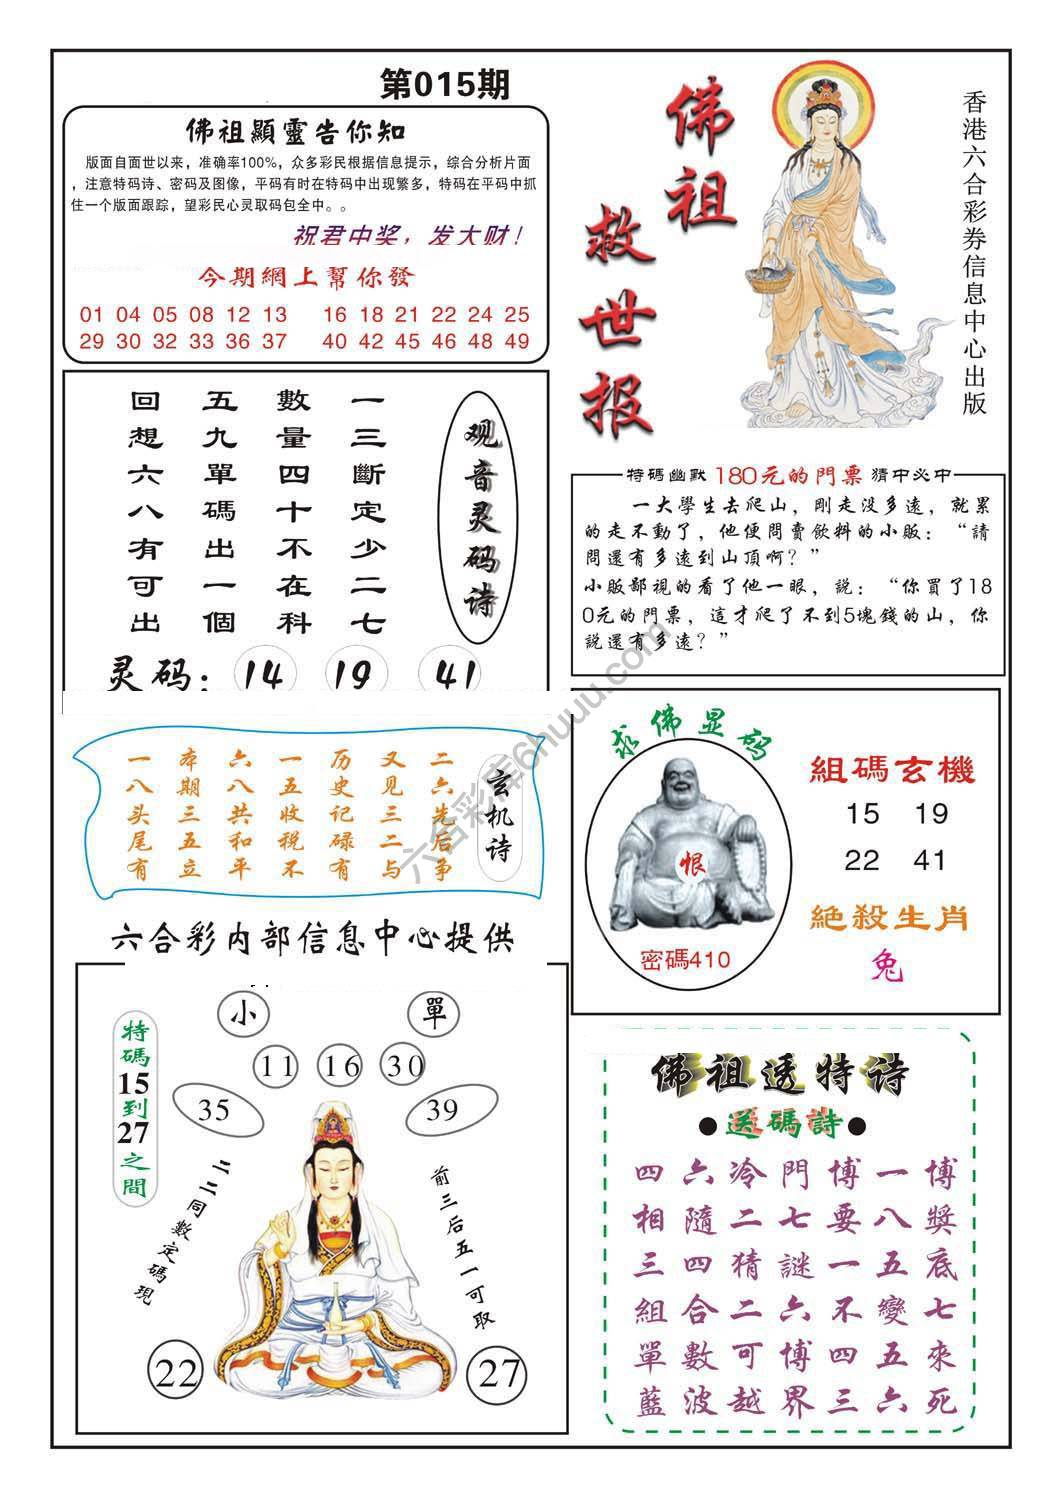 第015期
佛祖顯靈告你知
版面自面世以来，准确率100%，众多彩民根据信息提示，综合分析片面
，注意特码诗、密码及图像，平码有时在特码中出现繁多，特码在平码中抓
住一个版面跟踪，望彩民心灵取码包全中。。
祝君中奖，发大财！
今期網上幫你發
01 04 05 08 12 13 16 18 21 22 24 25
29 30 32 33 36 37 40 42 45 46 48 49
佛祖
救世报
香港六合彩券信息中心出版
观音灵码诗
一三斷定少二七
數量四十不在科
五九單碼出一個
回想六八有可出
灵码：14 19 41
特碼幽默 180元的門票 猜中必中
一大學生去爬山，剛走没多遠，就累
的走不動了，他便問賣飲料的小販：“請
問還有多遠到山頂啊？”
小販鄙視的看了他一眼，説：“你買了18
0元的門票，這才爬了不到5塊錢的山，你
説還有多遠？”
玄机诗
二六先后争
又见三二与
历史记碌有
一五收税不
六八共和平
本期三五立
一八头尾有
求佛显码
恨
密碼410
組碼玄機
15 19
22 41
絶殺生肖
兔
六合彩内部信息中心提供
小 單
11 16 30
35 39
特碼15到27之間
二二同數定碼現
前三后五一可取
22 27
佛祖透特诗
●送碼詩●
四六冷門博一博
相隨二七要八獎
三四猜謎一五底
組合二六不變七
單數可博四五來
藍波越界三六死
六合彩库6huuu.com